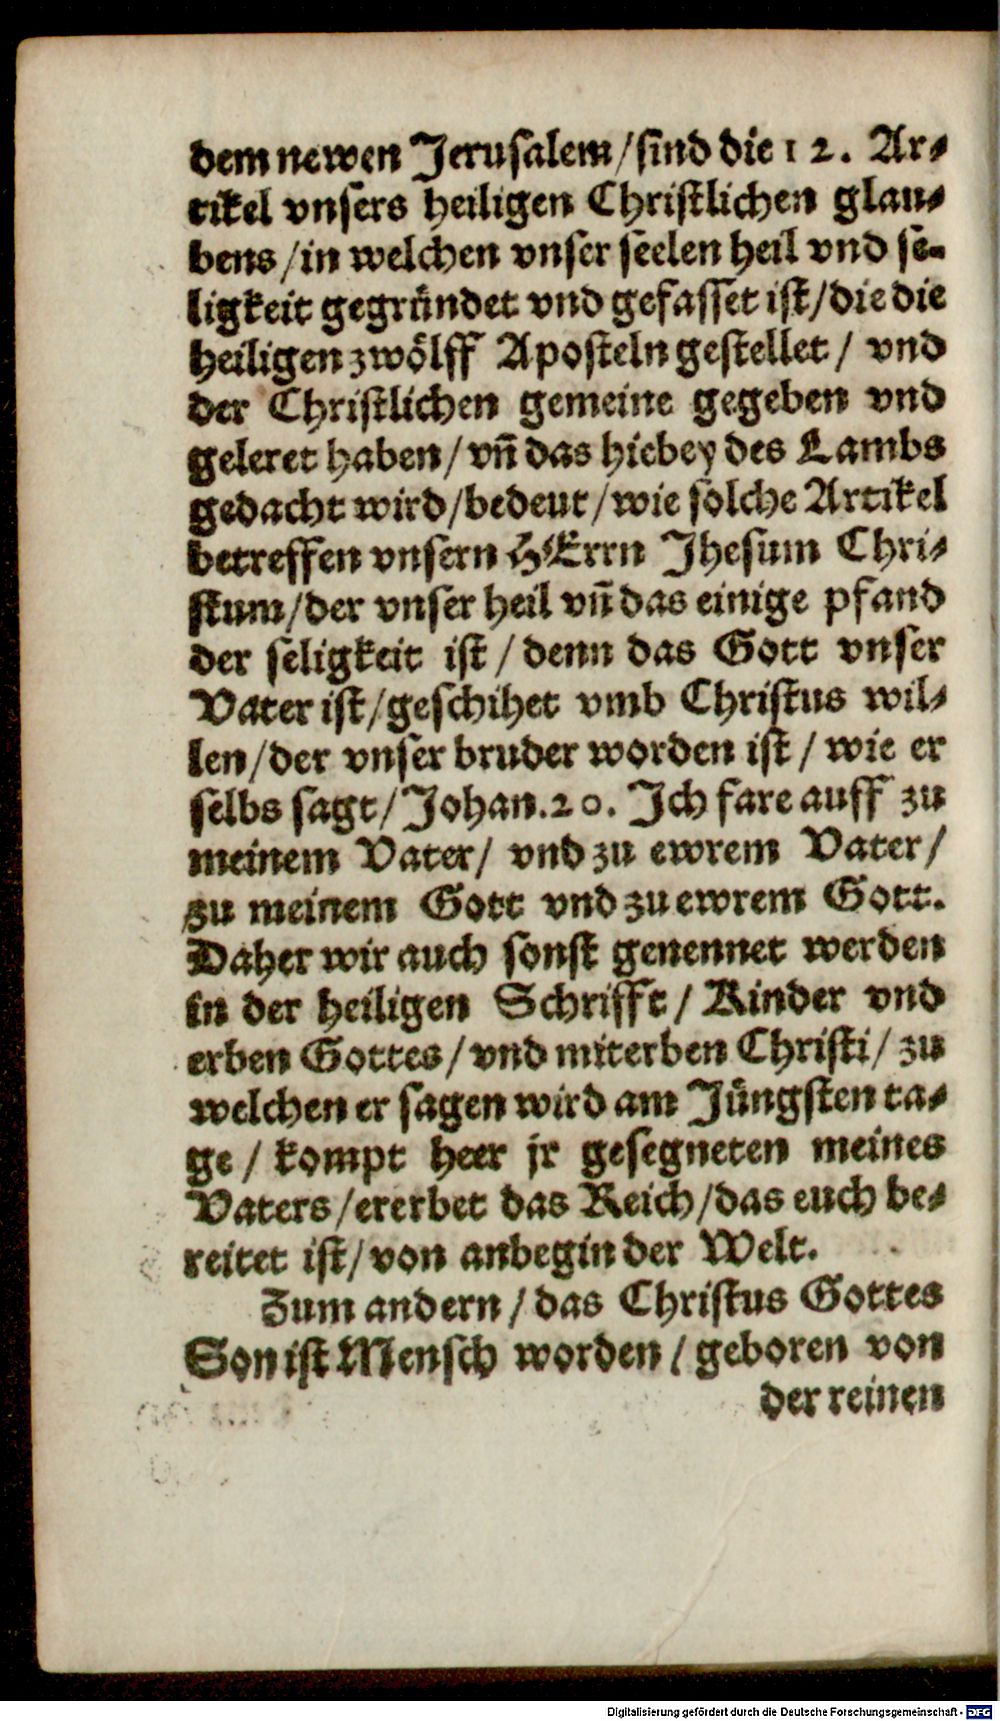 dem newen Jerusalem/sind die 12. Ar-
tikel vnsers heiligen Christlichen glau-
bens/in welchen vnser seelen heil vnd se-
ligkeit gegründet vnd gefasset ist/die die
heiligen zwölff Aposteln gestellet/ vnd
der Christlichen gemeine gegeben vnd
geleret haben/vn̄ das hiebey des Lambs
gedacht wird/bedeut/wie solche Artikel
betreffen vnsern HErrn Jhesum Chri-
stum/der vnser heil vn̄ das einige pfand
der seligkeit ist/denn das Gott vnser
Vater ist/geschihet vmb Christus wil-
len/der vnser bruder worden ist/ wie er
selbs sagt/Johan.20. Ich fare auff zu
meinem Vater/ vnd zu ewrem Vater/
zu meinem Gott vnd zu ewrem Gott.
Daher wir auch sonst genennet werden
in der heiligen Schrifft/ Kinder vnd
erben Gottes/vnd miterben Christi/ zu
welchen er sagen wird am Jüngsten ta-
ge/ kompt heer jr gesegneten meines
Vaters/ererbet das Reich/das euch be-
reitet ist/von anbegin der Welt.
Zum andern/das Christus Gottes
Son ist Mensch worden/geboren von
der reinen
Digitalisierung gefördert durch die Deutsche Forschungsgemeinschaft - DFG